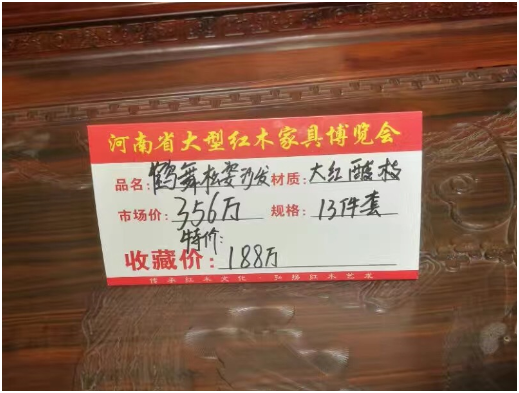 河南省大型红木家具博览会
品名:鹤舞松姿沙发 材质:大红酸枝
市场价:356万 规格:13件套
特价:
收藏价:188万
传承红木文化·弘扬红木艺术